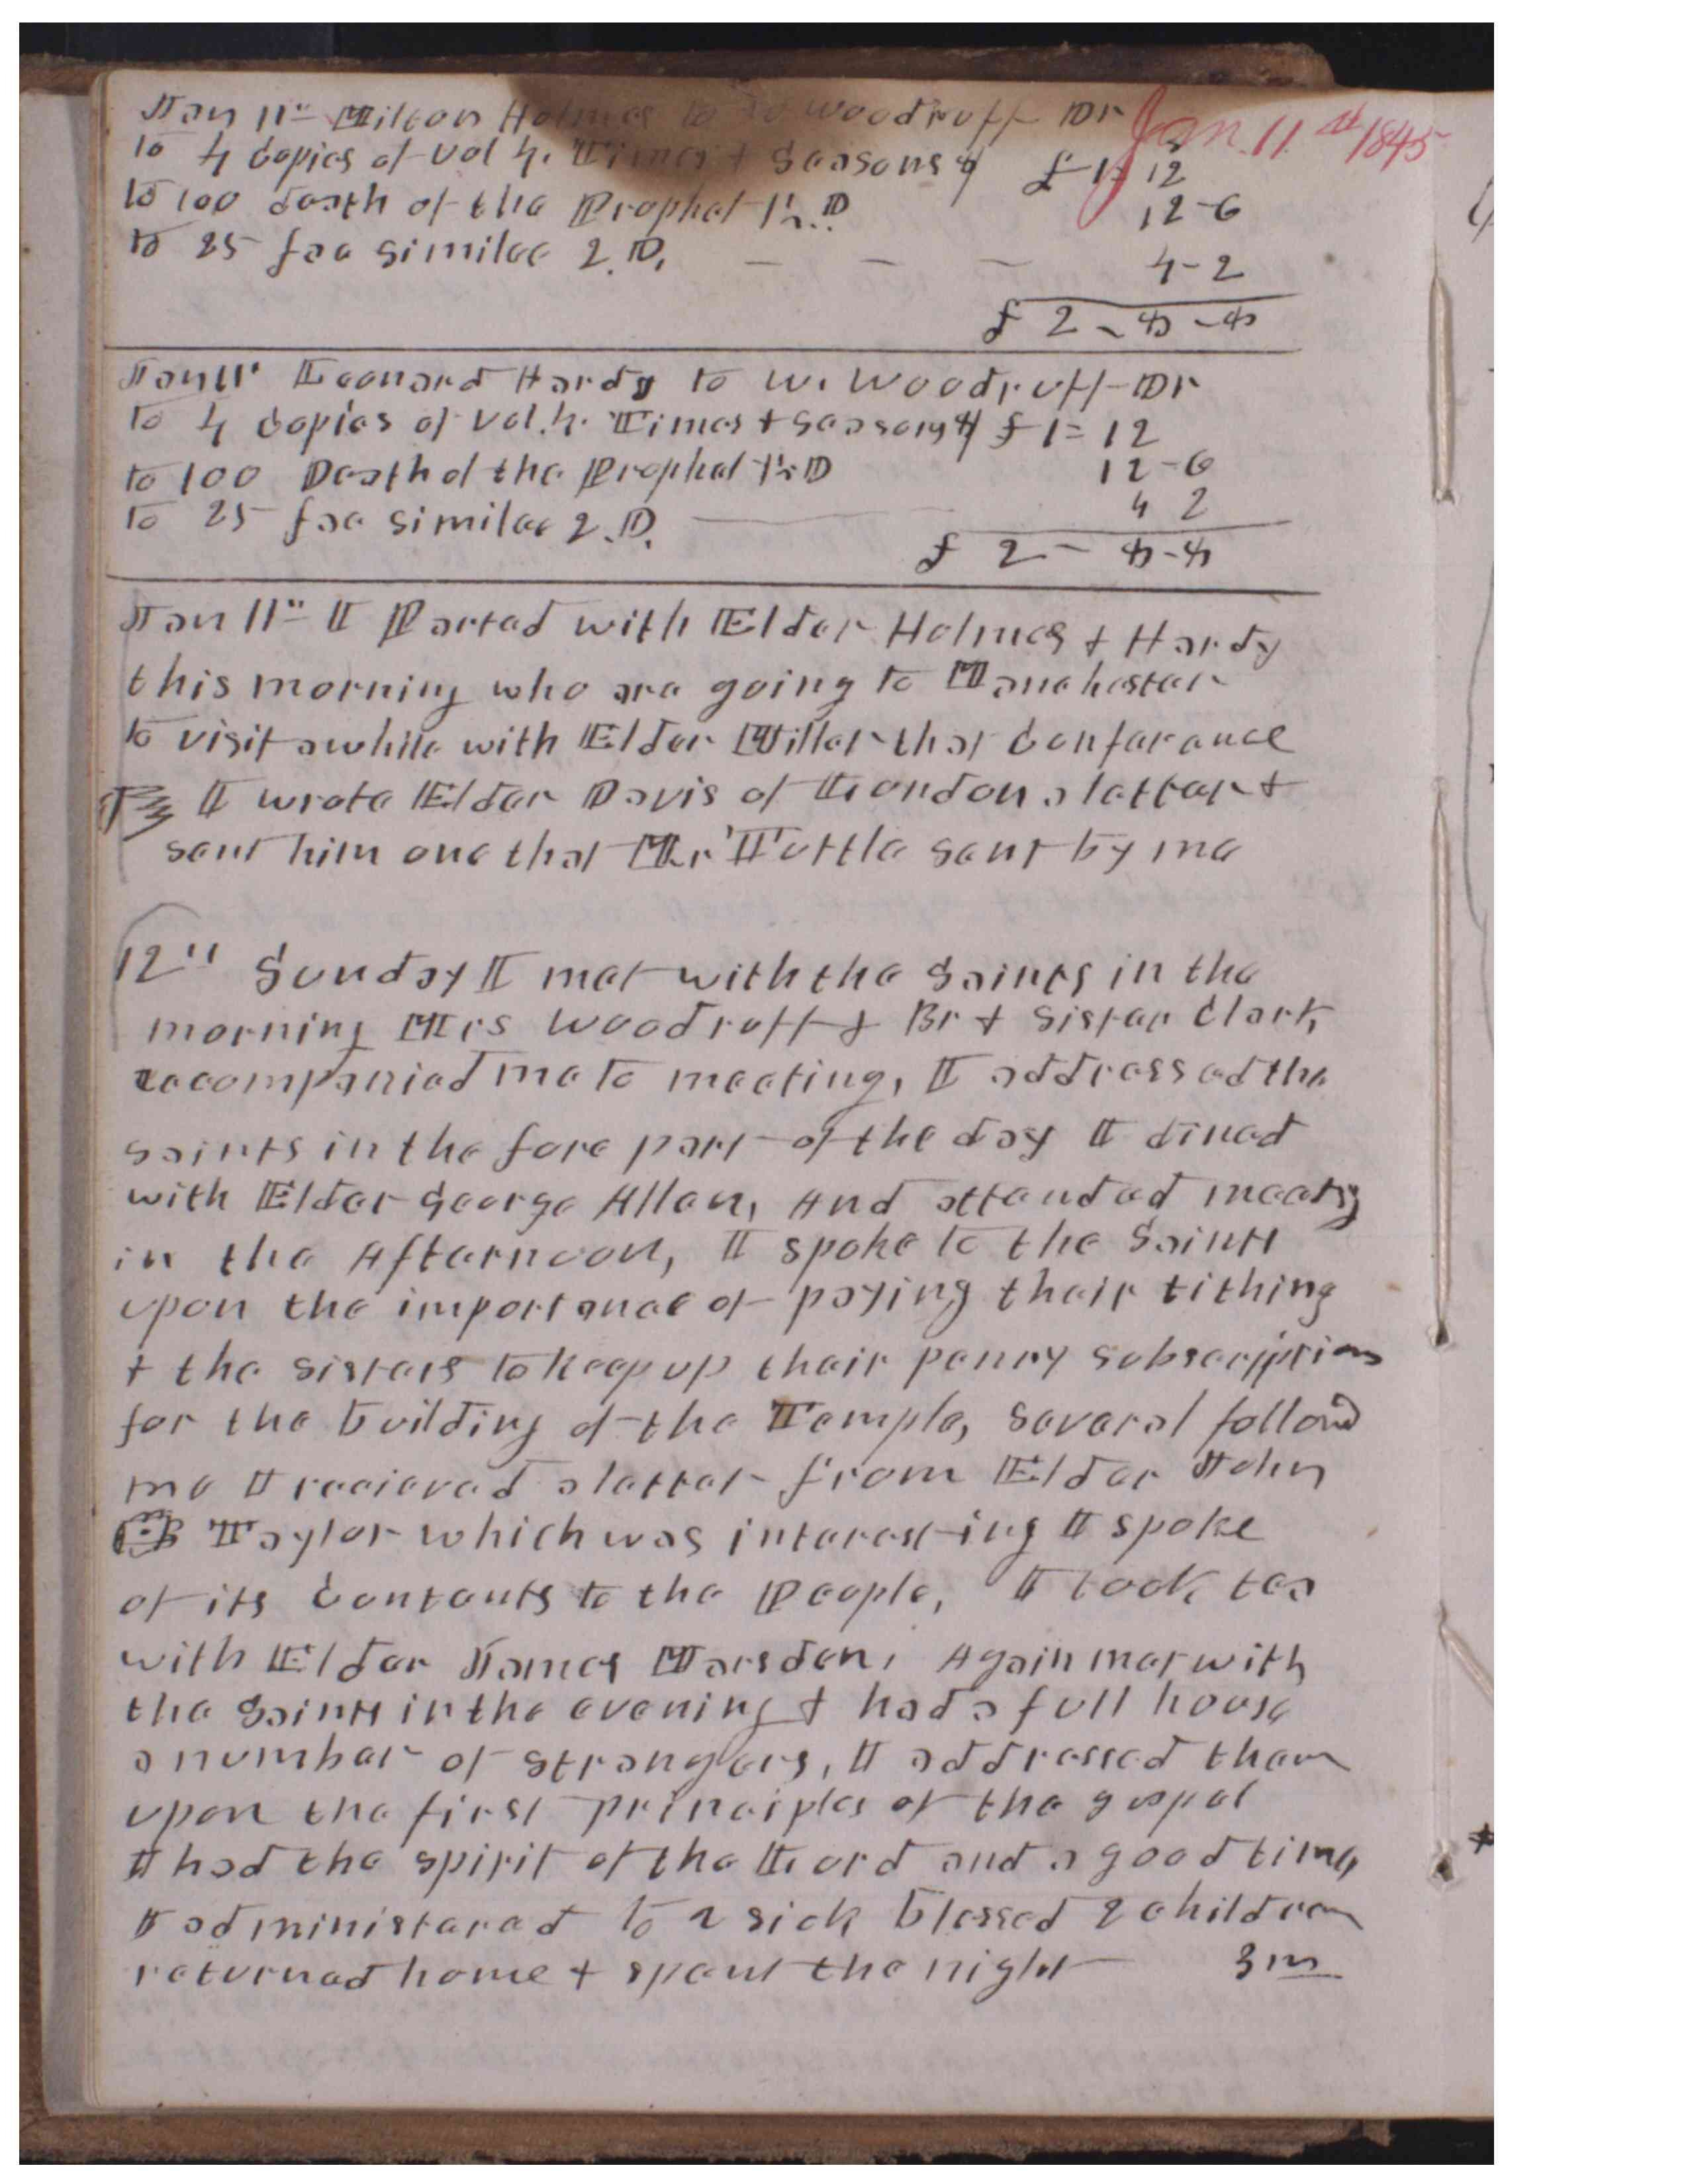 Jan 11th Milton Holmes to W Woodruff Dr
Jan. 11th 1845
to 4 Copies of Vol 4. Times & Seasons 8/ £1= 12
to 100 death of the Prophet 1½ D 12-6
to 25 fac similee 2.D, — — — 4-2
£ 2-8-8
Jan 11th Leonard Hardy to W. Woodruff Dr
to 4 Copies of Vol. 4. Times & Seasons 8/ £1=12
to 100 Death of the Prophet 1½ D 12-6
to 25 fac similee 2.D. 4 2
£ 2-8-8
Jan 11th I Parted with Elder Holmes & Hardy
this morning who are going to Manchester
to visit awhile with Elder Miller that Conferance
I wrote Elder Davis of London a letter &
sent him one that Mr Tuttle sent by me
12th Sunday I met with the Saints in the
morning Mrs Woodruff & Br & Sister Clark,
accompanied me to meeting, I addressed the
saints in the fore part of the day I dined
with Elder George Allen, And attended meeting
in the Afternoon, I spoke to the Saints
upon the importance of paying their tithing
& the sisters to keep up their penny subscription
for the building of the Temple, several followd
me I recieved a letter from Elder John
Taylor which was interesting I spoke
of its Contents to the People, I took tea
with Elder James Marsden, Again met with
the Saints in the evening & had a full house
a number of strangers, I addressed them
upon the first principles of the gospel
I had the spirit of the Lord and a good time,
I administered to 2 sick blessed 2 children
returned home & spent the night 3 m